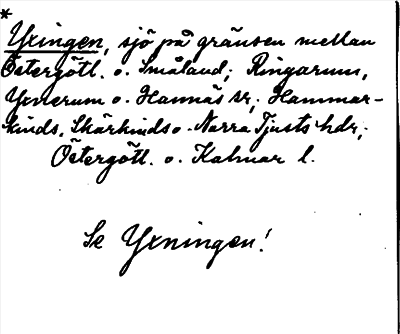 *
Yxingen, sjö på gränsen mellan
Östergötl. o. Småland; Ringarum,
Yxnerum o. Hannäs sr; Hammar-
kinds, Skärkinds o. Norra Tjusts hdr;
Östergötl. o. Kalmar l.
Se Yxningen!